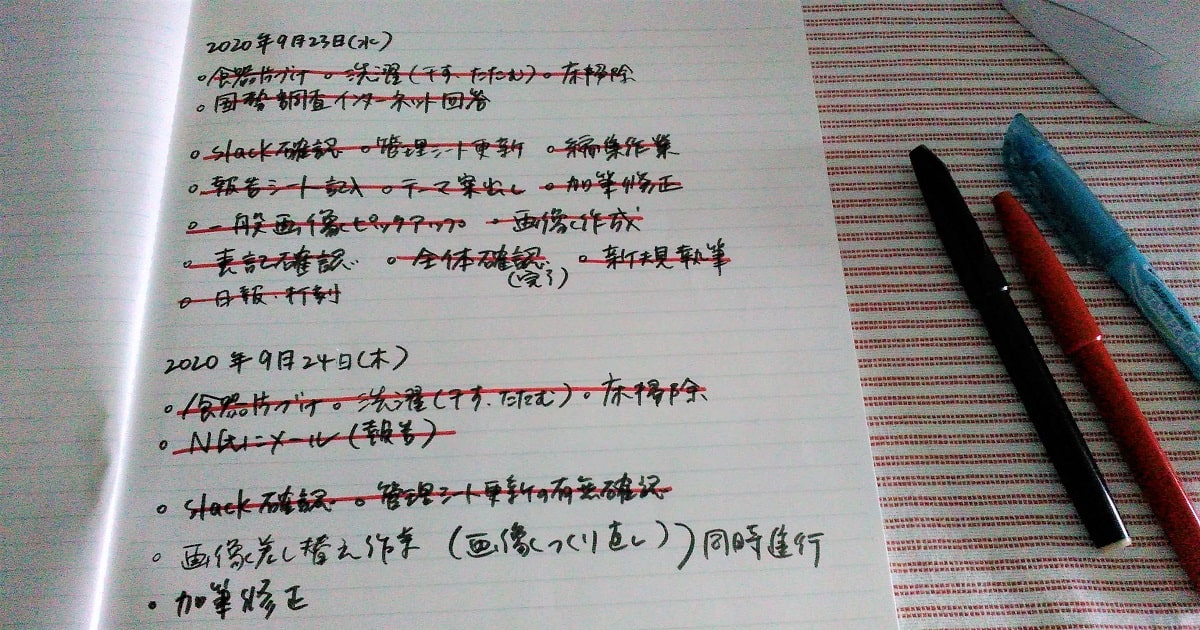 2020年9月23日(水)
○食器片づけ ○洗濯(干す、たたむ) ○床掃除
○国勢調査インターネット回答
○slack確認 ○管理シート更新 ○編集作業
○報告シート記入 ○テーマ案出し ○加筆修正
○一般画像ピックアップ ・画像作成
○表記確認 ○全体確認 ○新規執筆
(完了)
○日報・打刻
2020年9月24日(木)
○食器片づけ ○洗濯(干す、たたむ) ○床掃除
○N氏にメール(報告)
○slack確認 ○管理シート更新の有無確認
○画像差し替え作業 (画像つくり直し) 同時進行
・加筆修正